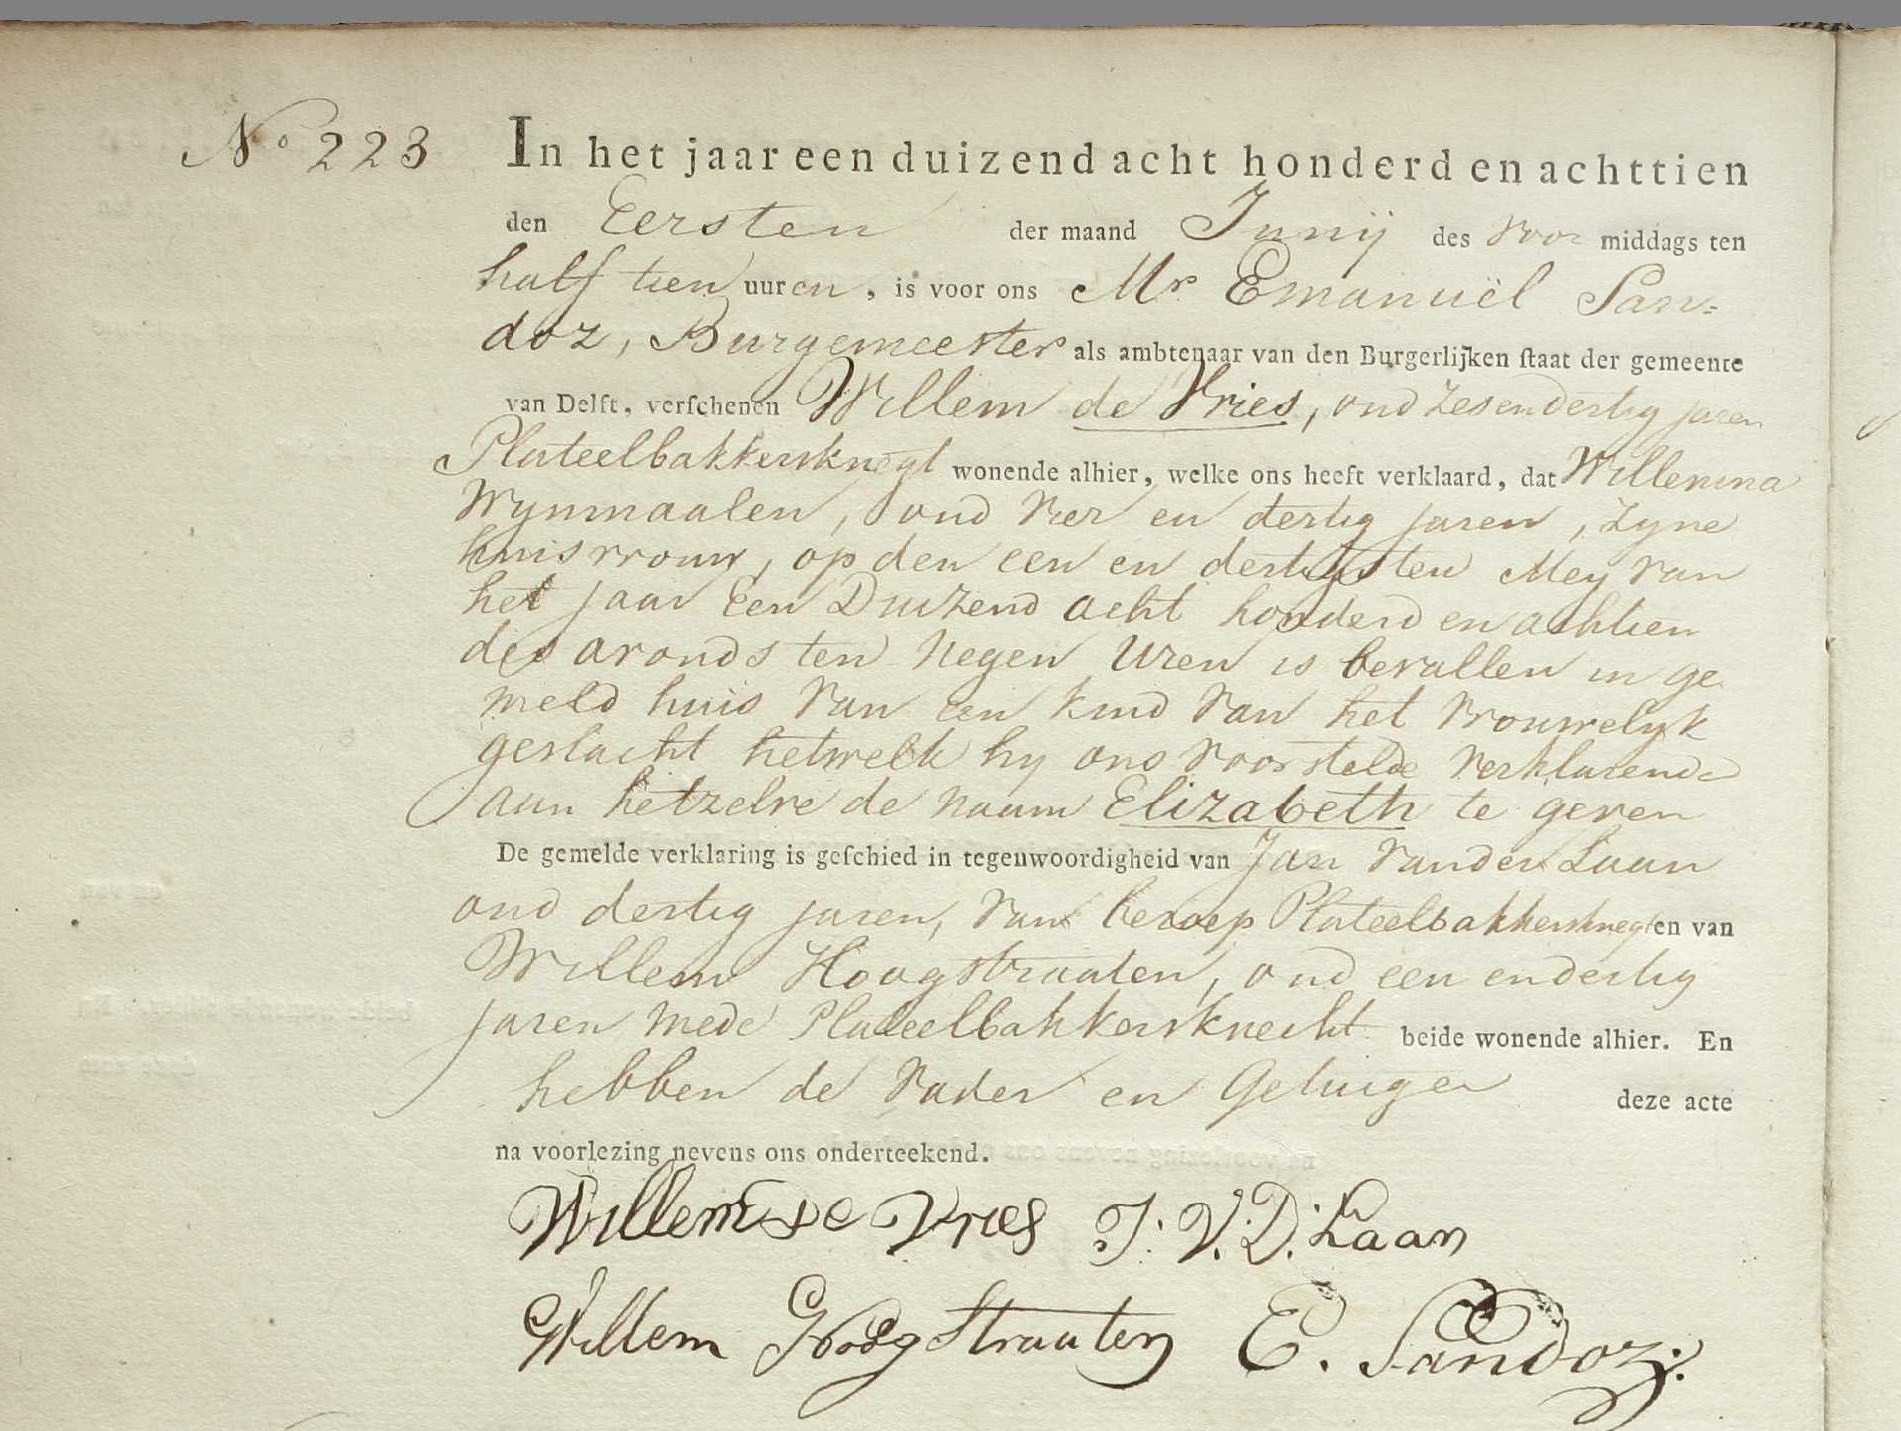 No 223
In het jaar een duizend acht honderd en achttien
den Eersten der maand Junij des voor middags ten
half tien uuren, is voor ons Mr Emanuël San=
doz, Burgemeester als ambtenaar van den Burgerlijken staat der gemeente
van Delft, verschenen Willem de Vries, oud zesendertig jaren
Plateelbakkersknegt wonende alhier, welke ons heeft verklaard, dat Willemina
Wymmaalen, oud vier en dertig jaren, zyne
huisvrouw, op den een en dertigsten Mey van
het jaar Een Duizend acht honderd en achtien
des avonds ten Negen Uren is bevallen in ge
meld huis van een kind van het vrouwelyk
geslacht hetwelk hy ons voorstelde verklarende
aan hetzelve de naam Elizabeth te geven
De gemelde verklaring is geschied in tegenwoordigheid van Jan vander Laan
oud dertig jaren, van beroep Plateelbakkersknegt en van
Willem Hoogstraaten, oud een en dertig
jaren mede Plateelbakkersknecht beide wonende alhier. En
hebben de Vader en Getuigen deze acte
na voorlezing nevens ons onderteekend.
Willem de Vries J. V. D. Laan
Willem Hoogstraaten E. Sandoz.